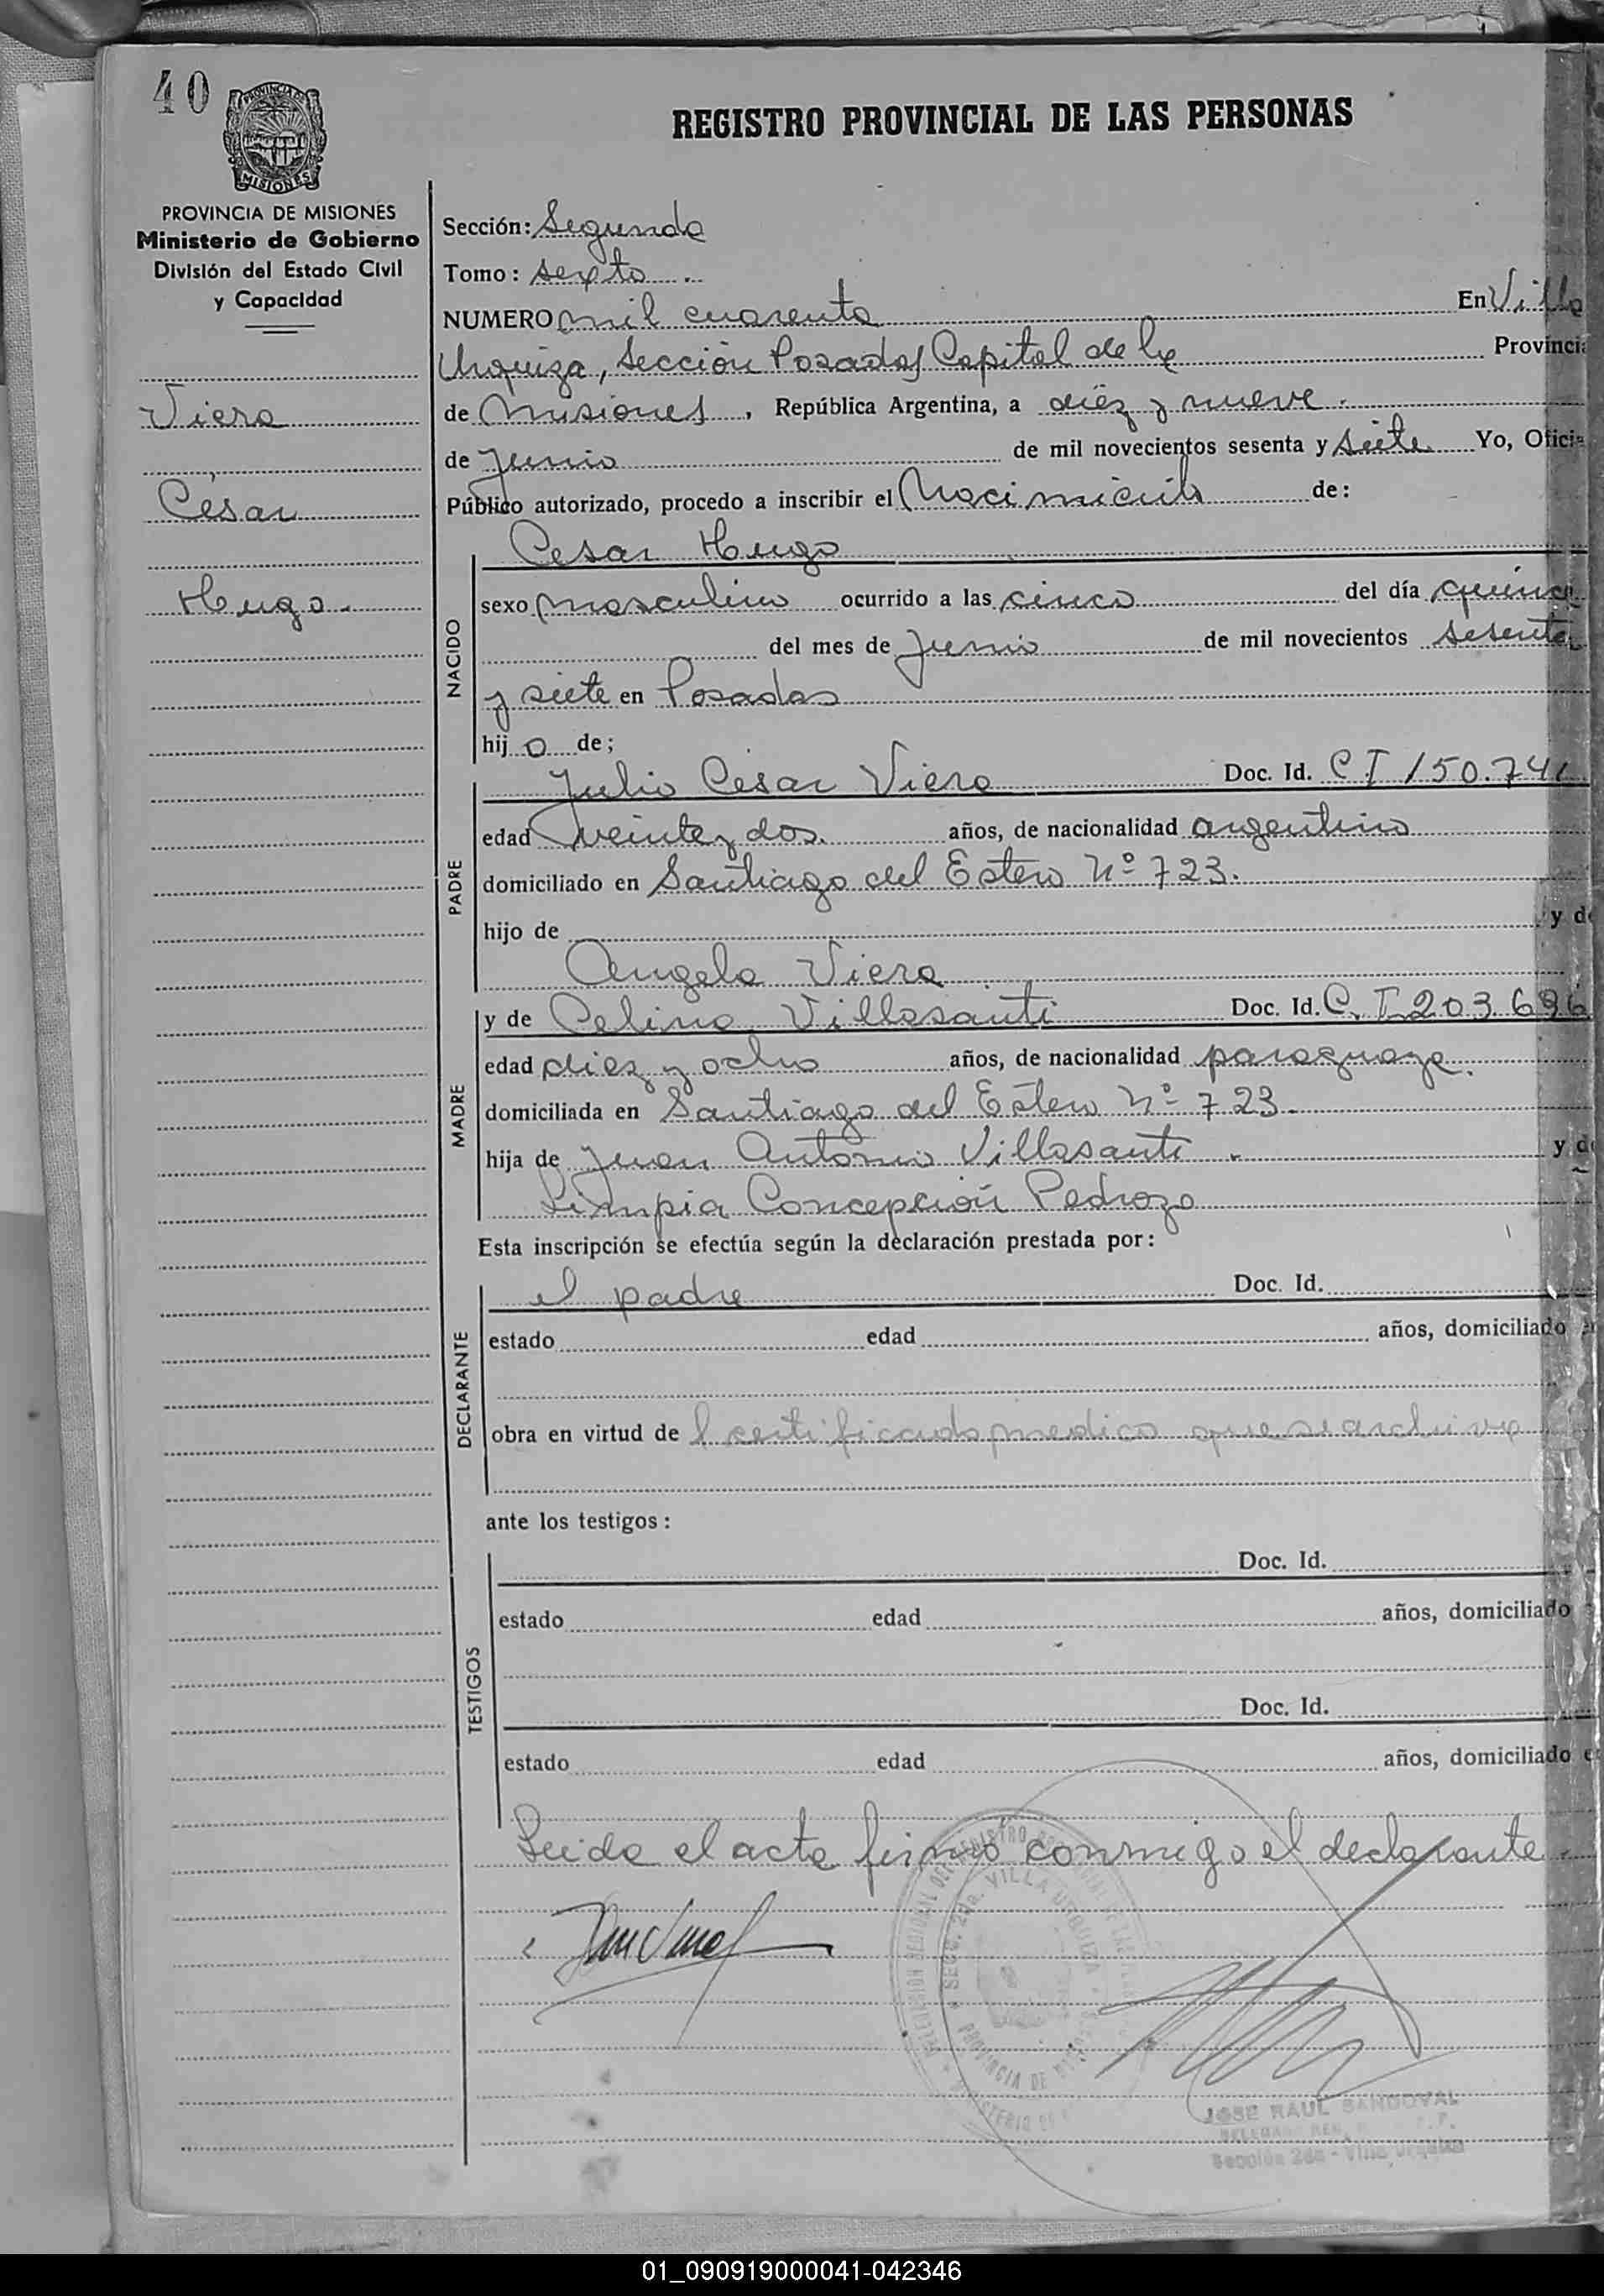 40
PROVINCIA DE
MISIONES
REGISTRO PROVINCIAL DE LAS PERSONAS
PROVINCIA DE MISIONES
Ministerio de Gobierno
División del Estado Civil
y Capacidad
Viera
César
Hugo.
Sección: Segunda
Tomo: sexto
NUMERO mil cuarenta En Villa
Urquiza, Sección Posadas Capital de la Provincia
de Misiones, República Argentina, a diéz y nueve.
de Junio de mil novecientos sesenta y siete Yo, Oficia
Público autorizado, procedo a inscribir el Nacimiento de:
Cesar Hugo
NACIDO
sexo masculino ocurrido a las cinco del día quince
del mes de Junio de mil novecientos sesenta
y siete en Posadas
hij o de;
PADRE
Julio Cesar Viera Doc. Id. C I 150.741
edad veinte y dos. años, de nacionalidad argentino
domiciliado en Santiago del Estero Nº 723.
hijo de y de
Angela Viera
MADRE
y de Celina Villasanti Doc. Id. C. I 203.696
edad diez y ocho años, de nacionalidad paraguaya.
domiciliada en Santiago del Estero Nº 723.
hija de Juan Antonio Villasanti. y de
Limpia Concepción Pedrozo
Esta inscripción se efectúa según la declaración prestada por:
DECLARANTE
el padre Doc. Id.
estado edad años, domiciliado
obra en virtud de l certificado medico que se archiva
ante los testigos:
TESTIGOS
Doc. Id.
estado edad años, domiciliado
Doc. Id.
estado edad años, domiciliado e
Leida el acta firmó conmigo el declarante.
SECC. 2da. VILLA URQUIZA
PROVINCIA DE
JOSE RAUL SANDOVAL
Sección 2da - Villa Urquiza
01_090919000041-042346